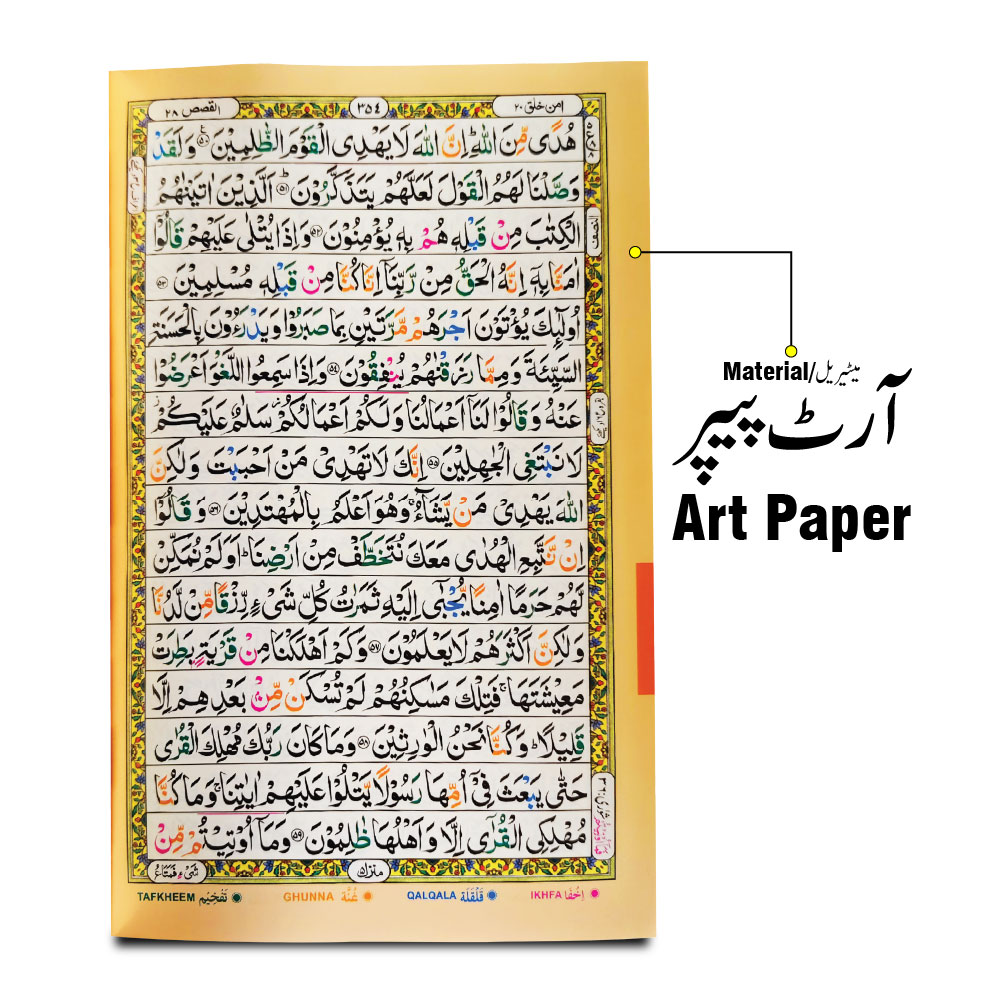 امن خلق ۲۰
۳۵۴
القصص ۲۸
هُدًى مِّنَ اللّٰهِ ؕ اِنَّ اللّٰهَ لَا يَهْدِى الْقَوْمَ الظّٰلِمِيْنَ ۵۰ وَلَقَدْ
وَصَّلْنَا لَهُمُ الْقَوْلَ لَعَلَّهُمْ يَتَذَكَّرُوْنَ ؕ ۵۱ اَلَّذِيْنَ اٰتَيْنٰهُمُ
الْكِتٰبَ مِنْ قَبْلِهٖ هُمْ بِهٖ يُؤْمِنُوْنَ ۵۲ وَاِذَا يُتْلٰى عَلَيْهِمْ قَالُوْۤا
النصف
اٰمَنَّا بِهٖۤ اِنَّهُ الْحَقُّ مِنْ رَّبِّنَاۤ اِنَّا كُنَّا مِنْ قَبْلِهٖ مُسْلِمِيْنَ ۵۳
اُولٰٓئِكَ يُؤْتَوْنَ اَجْرَهُمْ مَّرَّتَيْنِ بِمَا صَبَرُوْا وَيَدْرَءُوْنَ بِالْحَسَنَةِ
السَّيِّئَةَ وَمِمَّا رَزَقْنٰهُمْ يُنْفِقُوْنَ ۵۴ وَاِذَا سَمِعُوا اللَّغْوَ اَعْرَضُوْا
عَنْهُ وَقَالُوْا لَنَاۤ اَعْمَالُنَا وَلَكُمْ اَعْمَالُكُمْ سَلٰمٌ عَلَيْكُمْ
لَا نَبْتَغِى الْجٰهِلِيْنَ ۵۵ اِنَّكَ لَا تَهْدِىْ مَنْ اَحْبَبْتَ وَلٰكِنَّ
اللّٰهَ يَهْدِىْ مَنْ يَّشَآءُ ۚ وَهُوَ اَعْلَمُ بِالْمُهْتَدِيْنَ ۵۶ وَقَالُوْۤا
اِنْ نَّتَّبِعِ الْهُدٰى مَعَكَ نُتَخَطَّفْ مِنْ اَرْضِنَا ؕ اَوَلَمْ نُمَكِّنْ
لَّهُمْ حَرَمًا اٰمِنًا يُّجْبٰٓى اِلَيْهِ ثَمَرٰتُ كُلِّ شَىْءٍ رِّزْقًا مِّنْ لَّدُنَّا
وَلٰكِنَّ اَكْثَرَهُمْ لَا يَعْلَمُوْنَ ۵۷ وَكَمْ اَهْلَكْنَا مِنْ قَرْيَةٍۭ بَطِرَتْ
مَعِيْشَتَهَا ۚ فَتِلْكَ مَسٰكِنُهُمْ لَمْ تُسْكَنْ مِّنْۢ بَعْدِهِمْ اِلَّا
قَلِيْلًا ؕ وَكُنَّا نَحْنُ الْوٰرِثِيْنَ ۵۸ وَمَا كَانَ رَبُّكَ مُهْلِكَ الْقُرٰى
حَتّٰى يَبْعَثَ فِىْۤ اُمِّهَا رَسُوْلًا يَّتْلُوْا عَلَيْهِمْ اٰيٰتِنَا ۚ وَمَا كُنَّا
مُهْلِكِى الْقُرٰٓى اِلَّا وَاَهْلُهَا ظٰلِمُوْنَ ۵۹ وَمَاۤ اُوْتِيْتُمْ مِّنْ
شَىْءٍ فَمَتَاعُ
منزل ۵
IKHFA اِخْفَا
QALQALA قَلْقَلَة
GHUNNA غُنَّه
TAFKHEEM تَفْخِيْم
Material/میٹیریل
آرٹ پیپر
Art Paper